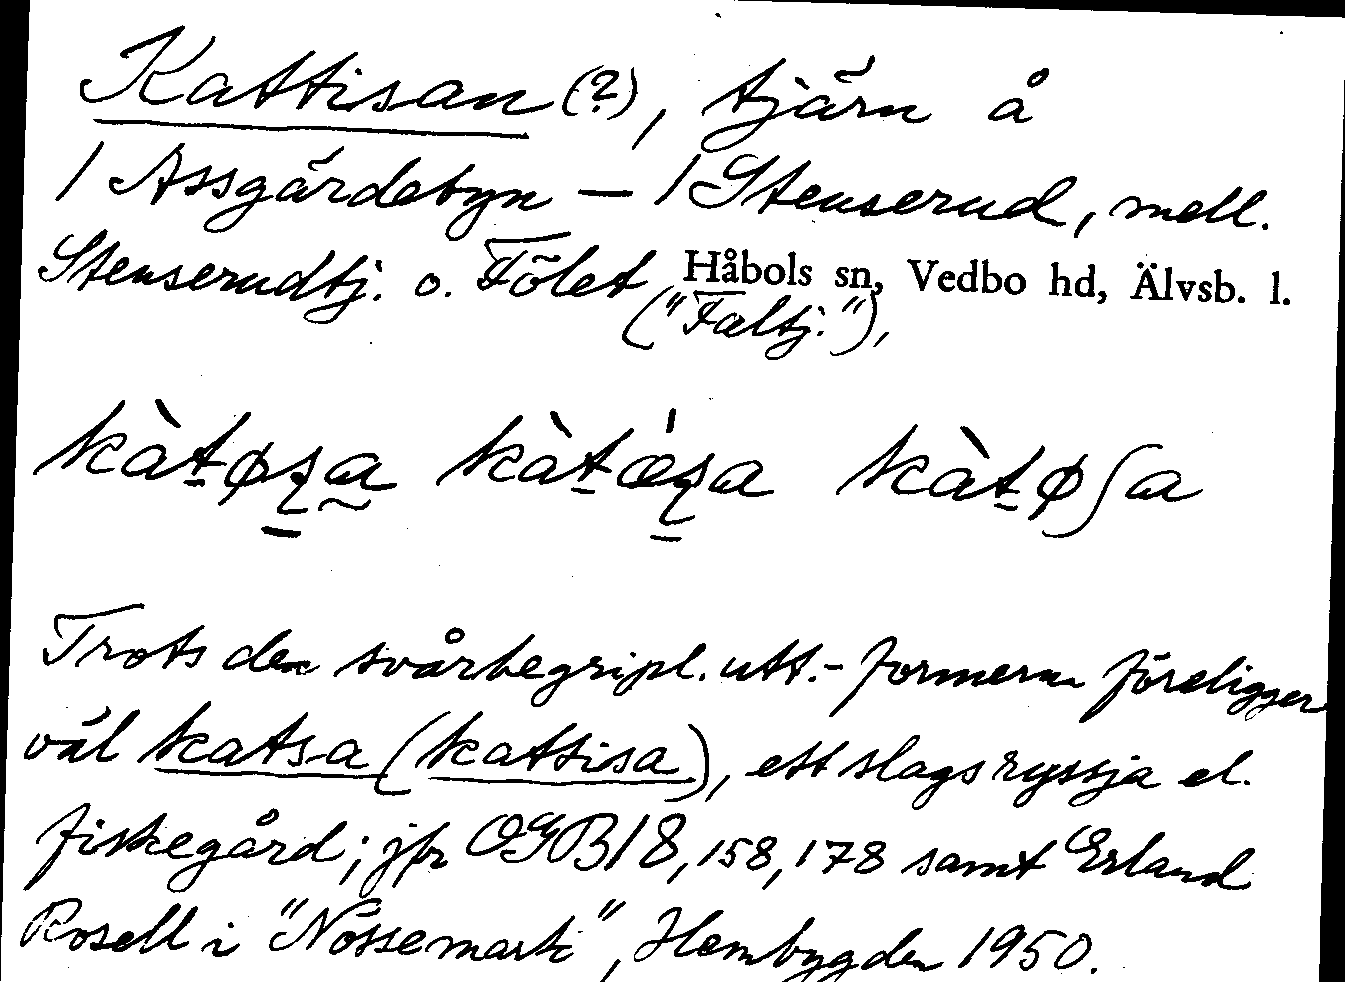 Kattisan (?), tjärn å
/ Assgärdebyn — / Stenserud, mell.
Stenserudtj. o. Fölet Håbols sn, Vedbo hd, Älvsb. l.
("Faltj."),
kàt̠øʂa kàt̠ǿʂa kàt̠øʃa
Trots den svårbegripl. utt.-formerna föreligger
väl katsa (kattisa), ett slags ryssja el.
fiskegård; jfr OGB 18, 158, 178 samt Erland
Rosell i "Nössemark", Hembygden 1950.